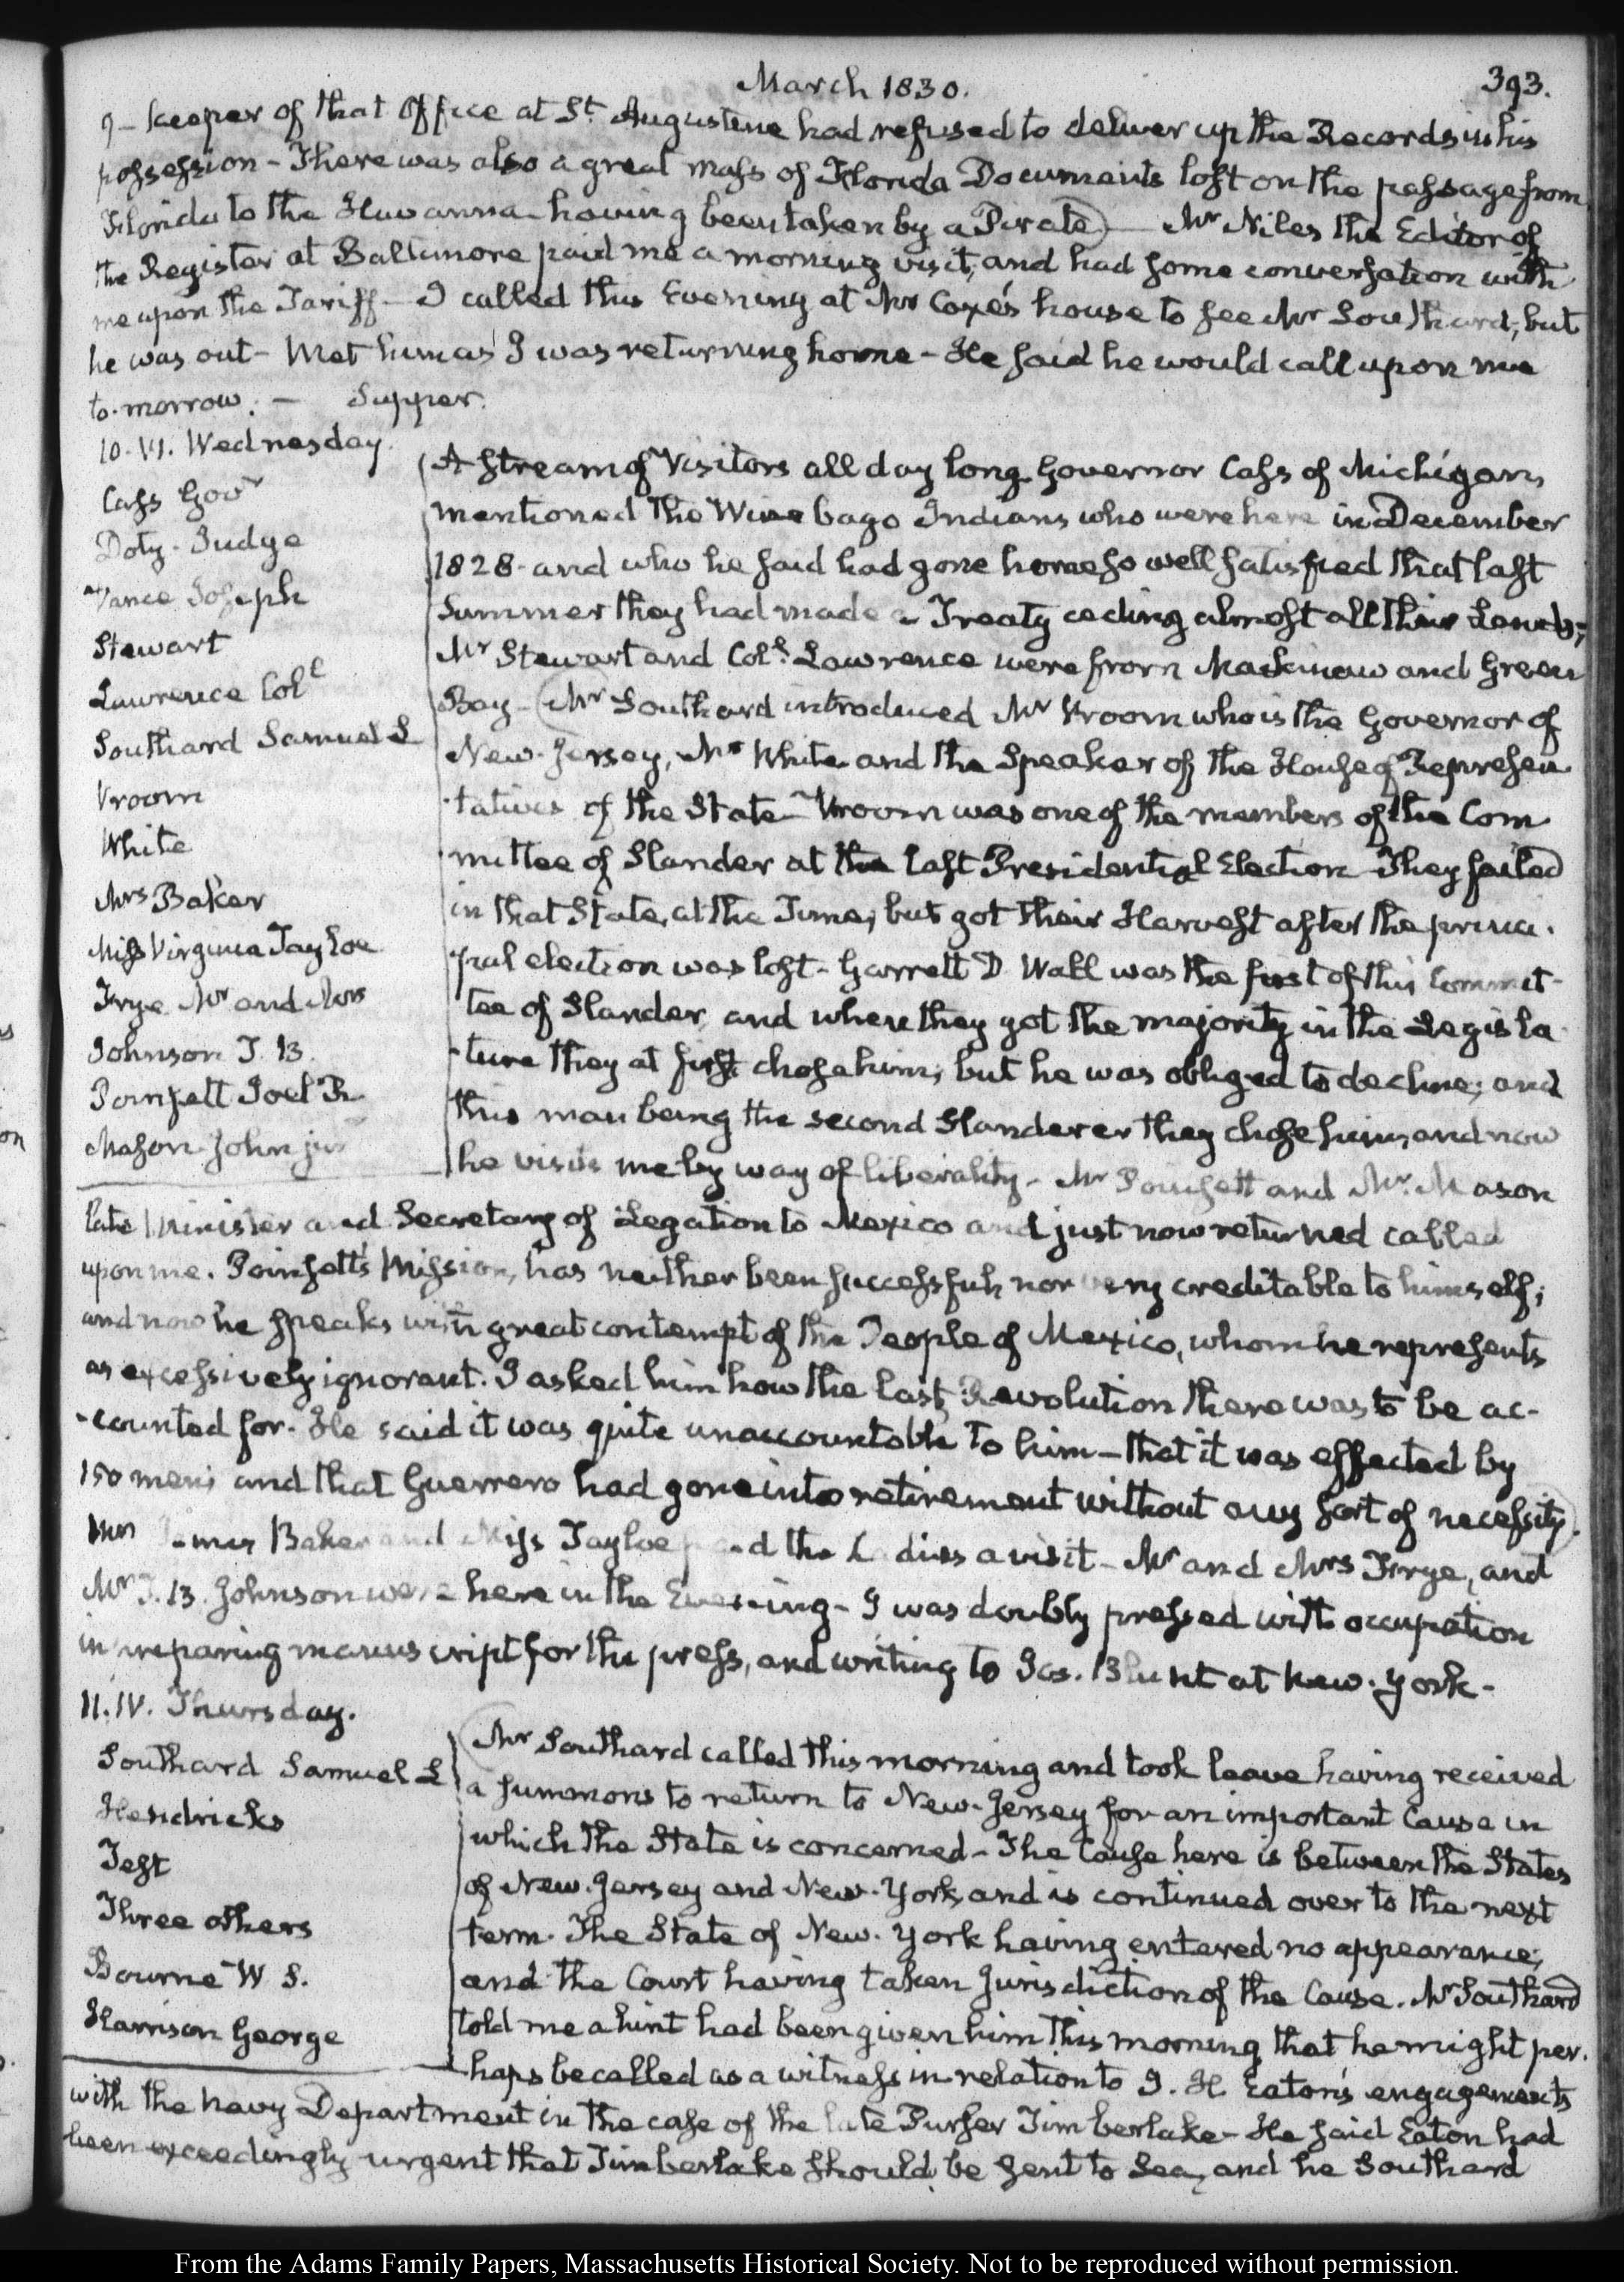 March 1830.
393.
9 – keeper of that Office at St. Augustine had refused to deliver up the Records in his
possession – There was also a great mass of Florida Documents lost on the passage from
Florida to the Havanna having been taken by a Pirate) – Mr Niles the Editor of
the Register at Baltimore paid me a morning visit, and had some conversation with
me upon the Tariff – I called this Evening at Mr Coxe's house to see Mr Southard, but
he was out – Met him as I was returning home – He said he would call upon me
to-morrow. – Supper.
10. VI. Wednesday.
Cass Govr
Doty. Judge
Vance Joseph
Stewart
Lawrence Coll
Southard Samuel L
Vroom
White
Mrs Baker
Miss Virginia Tayloe
Frye Mr and Mrs
Johnson J. B.
Poinsett Joel R
Mason John jun
A stream of Visitors all day long. Governor Cass of Michigan,
mentioned the Winebago Indians who were here in December
1828. and who he said had gone home so well satisfied that last
Summer they had made a Treaty ceding almost all their Lands;
Mr Stewart and Coll. Lawrence were from Mackinaw and Green
Bay – (Mr Southard introduced Mr Vroom who is the Governor of
New-Jersey, Mr White and the Speaker of the House of Represen
tatives of the State – Vroom was one of the members of the Com
mittee of Slander at the last Presidential Election – They failed
in that State, at the Time, but got their Harvest after the princi-
pal election was lost – Garrett D Wall was the first of this Commit-
tee of Slander, and when they got the majority in the Legisla
ture they at first chose him; but he was obliged to decline; and
this man being the second Slanderer they chose him, and now
he visits me by way of liberality – Mr Poinsett and Mr. Mason
late Minister and Secretary of Legation to Mexico and just now returned called
upon me. Poinsett's Mission, has neither been successful, nor very creditable to himself;
and now he speaks with great contempt of the People of Mexico, whom he represents
as excessively ignorant. I asked him how the last Revolution there was to be ac-
-counted for. He said it was quite unaccountable to him – that it was effected by
150 men; and that Guerrero had gone into retirement without any sort of necessity).
Mrs James Baker and Miss Tayloe paid the Ladies a visit – Mr and Mrs Frye, and
Mr J. B. Johnson were here in the Evening – I was doubly pressed with occupation
in preparing manuscript for the press, and writing to Jos. Blunt at New-York –
11. IV. Thursday.
Southard Samuel L
Hendricks
Test
Three others
Bourne W S.
Harrison George
(Mr Southard called this morning and took leave having received
a summons to return to New-Jersey for an important Cause in
which the State is concerned – The Cause here is between the States
of New-Jersey and New-York, and is continued over to the next
term. The State of New-York having entered no appearance,
and the Court having taken Jurisdiction of the Cause. Mr Southard
told me a hint had been given him this morning that he might per-
haps be called as a witness in relation to J. H. Eaton's engagements
with the Navy Department in the case of the late Purser Timberlake – He said Eaton had
been exceedingly urgent that Timberlake should be sent to Sea, and he Southard
From the Adams Family Papers, Massachusetts Historical Society. Not to be reproduced without permission.